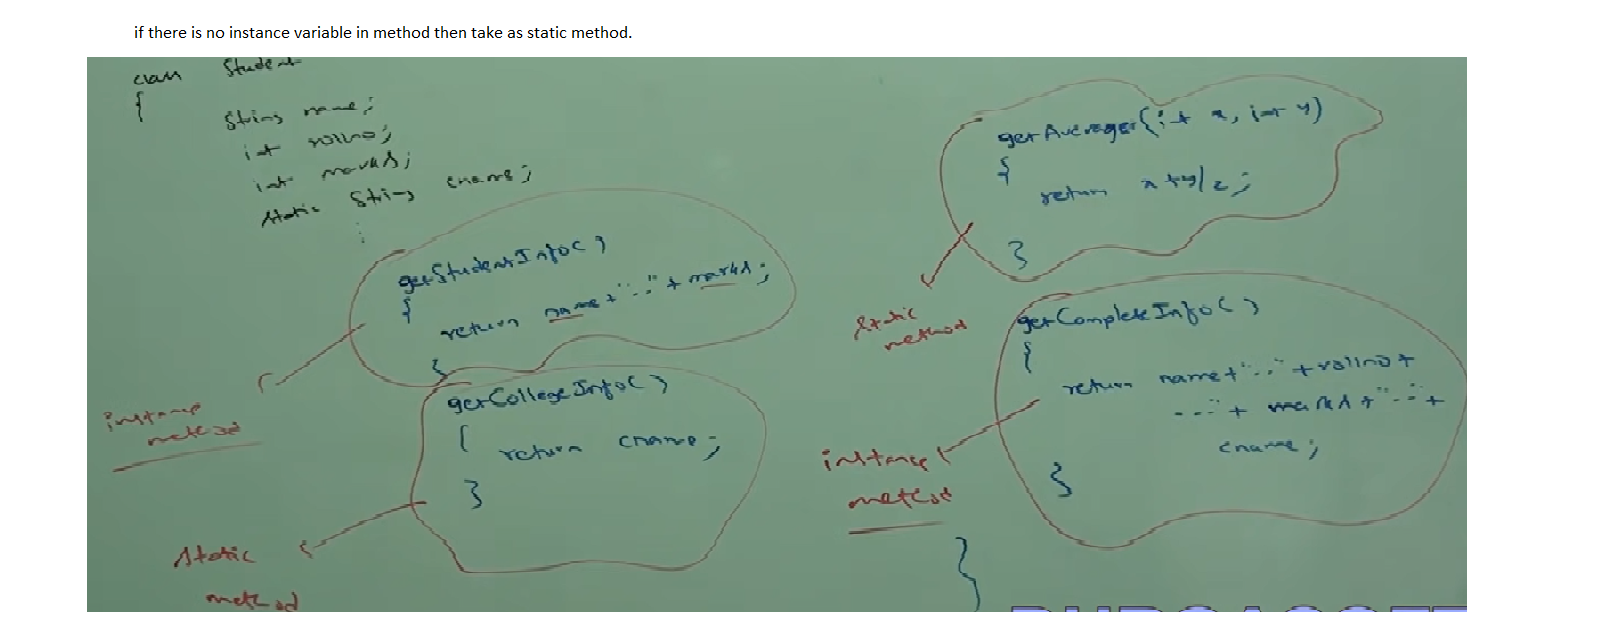 if there is no instance variable in method then take as static method.
class Student
{
String name;
int rollno;
int marks;
static String cname;
getStudentInfo()
{
return name+"--"+marks;
}
instance
method
getCollegeInfo()
{
return cname;
}
static
method
getAverage(int x, int y)
{
return x+y/2;
}
static
method
getCompleteInfo()
{
return name+"--"+rollno+
"--"+marks+"--"+
cname;
}
instance
method
}